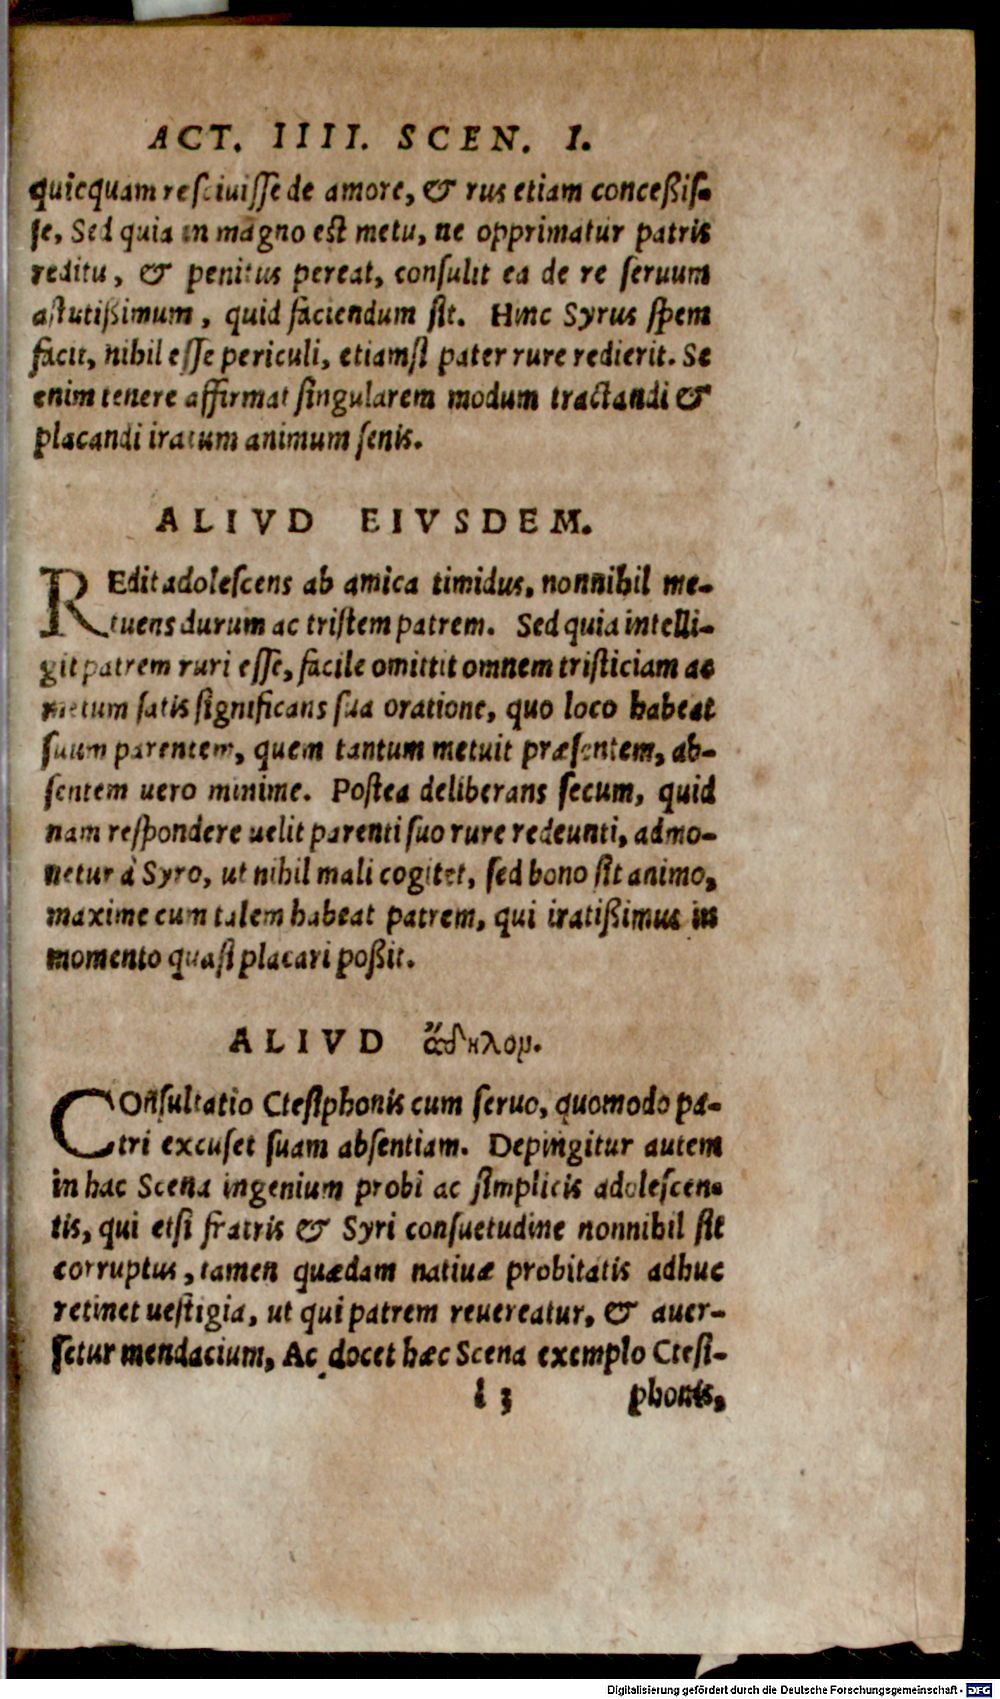 ACT. IIII. SCEN. I.
quicquam resciuisse de amore, & rus etiam conceßis-
se, Sed quia in magno est metu, ne opprimatur patris
reditu, & penitus pereat, consulit ea de re seruum
astutißimum, quid faciendum sit. Hinc Syrus spem
facit, nihil esse periculi, etiamsi pater rure redierit. Se
enim tenere affirmat singularem modum tractandi &
placandi iratum animum senis.
ALIVD EIVSDEM.
REdit adolescens ab amica timidus, nonnihil me-
tuens durum ac tristem patrem. Sed quia intelli-
git patrem ruri esse, facile omittit omnem tristiciam ac
metum satis significans sua oratione, quo loco habeat
suum parentem, quem tantum metuit præsentem, ab-
sentem uero minime. Postea deliberans secum, quid
nam respondere uelit parenti suo rure redeunti, admo-
netur à Syro, ut nihil mali cogitet, sed bono sit animo,
maxime cum talem habeat patrem, qui iratißimus in
momento quasi placari poßit.
ALIVD ἄδηλομ.
COnsultatio Ctesiphonis cum seruo, quomodo pa-
tri excuset suam absentiam. Depingitur autem
in hac Scena ingenium probi ac simplicis adolescen-
tis, qui etsi fratris & Syri consuetudine nonnihil sit
corruptus, tamen quædam natiuæ probitatis adhuc
retinet uestigia, ut qui patrem reuereatur, & auer-
setur mendacium, Ac docet hæc Scena exemplo Ctesi-
l 3 phonis,
Digitalisierung gefördert durch die Deutsche Forschungsgemeinschaft - DFG